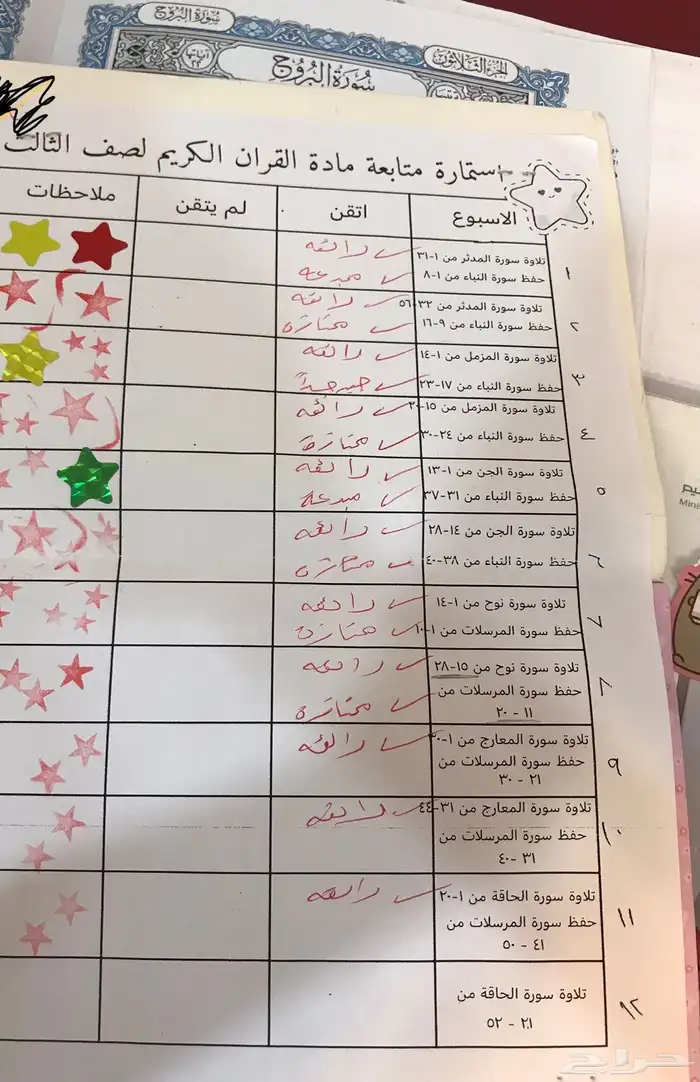 سورة البروج
الجزء الثلاثون
سورة البروج
استمارة متابعة مادة القران الكريم لصف الثالث
الاسبوع
اتقن
لم يتقن
ملاحظات
١
تلاوة سورة المدثر من ١-٣١
رائعه
حفظ سورة النباء من ١-٨
مبدعه
٢
تلاوة سورة المدثر من ٣٢-٥٦
رائعه
حفظ سورة النباء من ٩-١٦
ممتازة
٣
تلاوة سورة المزمل من ١-١٤
رائعه
حفظ سورة النباء من ١٧-٢٣
جيد جداً
٤
تلاوة سورة المزمل من ١٥-٢٠
رائعه
حفظ سورة النباء من ٢٤-٣٠
ممتازة
٥
تلاوة سورة الجن من ١-١٣
رائعه
حفظ سورة النباء من ٣١-٣٧
مبدعه
٦
تلاوة سورة الجن من ١٤-٢٨
رائعه
حفظ سورة النباء من ٣٨-٤٠
ممتازه
٧
تلاوة سورة نوح من ١-١٤
رائعه
حفظ سورة المرسلات من ١-١٠
ممتازه
٨
تلاوة سورة نوح من ١٥-٢٨
رائعه
حفظ سورة المرسلات من
١١ - ٢٠
ممتازة
٩
تلاوة سورة المعارج من ١-٣٠
رائعه
حفظ سورة المرسلات من
٢١ - ٣٠
١٠
تلاوة سورة المعارج من ٣١-٤٤
رائعه
حفظ سورة المرسلات من
٣١ -٤٠
١١
تلاوة سورة الحاقة من ١-٢٠
رائعه
حفظ سورة المرسلات من
٤١ - ٥٠
١٢
تلاوة سورة الحاقة من
٢١ - ٥٢
حراج